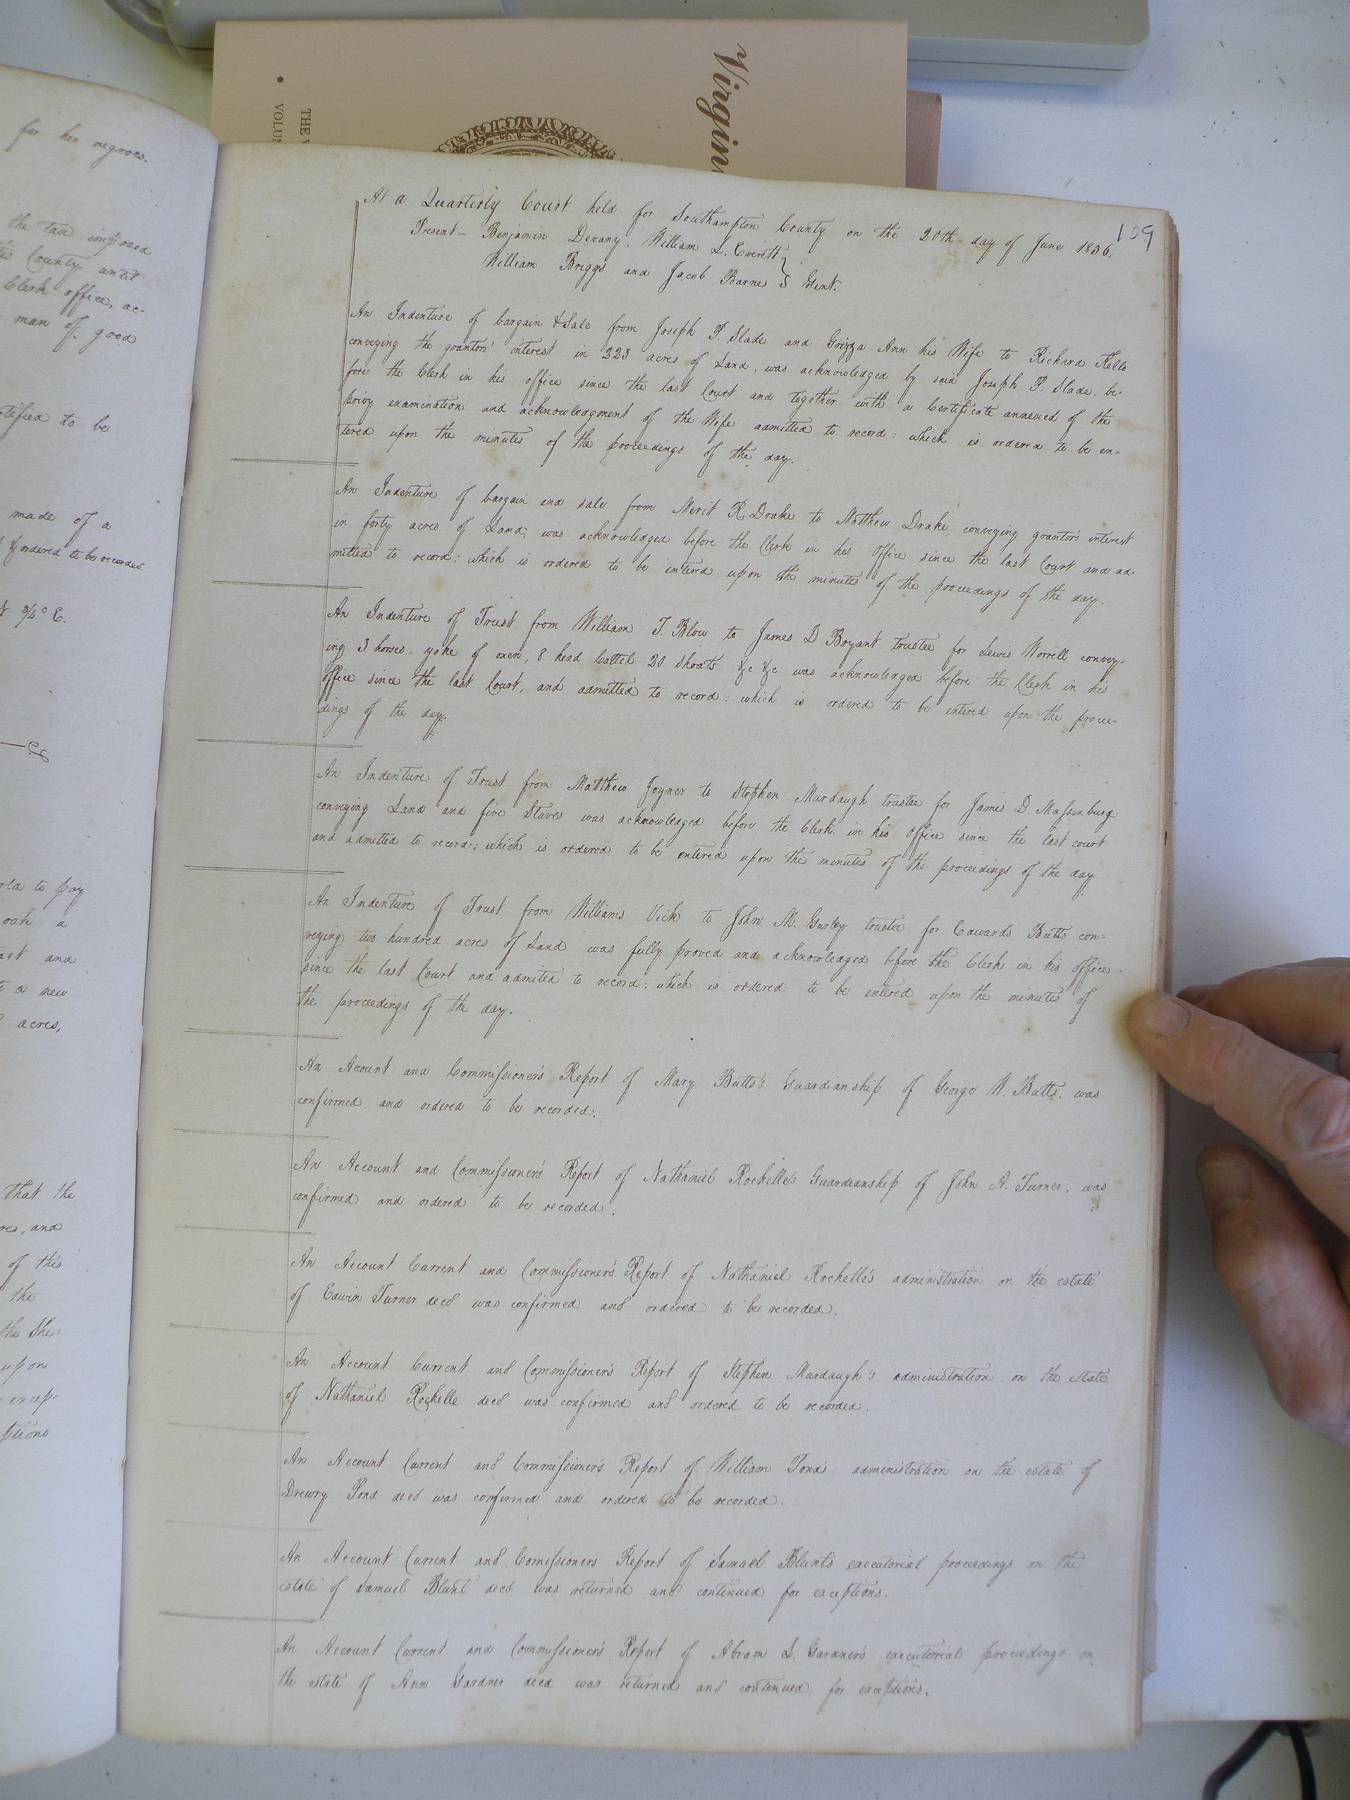 Virgin
THE V
VOLU
for her negroes.
the tax imposed
his County until
Clerk office, ac-
man of good
tified to be
made of a
& ordered to be recorded.
3/4° E.
old to pay
oak a
and
a new
acres,
that the
and
of this
the
the She
upon
excep-
ptions
159
At a Quarterly Court held for Southampton County on the 20th day of June 1836.
Present — Benjamin Devany, William L. Everett
William Briggs and Jacob Barnes } Gent.
An Indenture of bargain & Sale from Joseph P. Slade and Grizza Ann his Wife to Richard Kello
conveying the grantors' interest in 223 acres of Land, was acknowledged by said Joseph P. Slade, be-
fore the Clerk in his office since the last Court and together with a Certificate annexed of the
privy examination and acknowledgment of the Wife admitted to record: which is ordered to be en-
tered upon the minutes of the proceedings of the day.
An Indenture of bargain and sale from Merit R. Drake to Matthew Drake conveying grantor's interest
in forty acres of Land, was acknowledged before the Clerk in his office since the last Court and ad
mitted to record: which is ordered to be entered upon the minutes of the proceedings of the day.
An Indenture of Trust from William T. Blow to James D Bryant trustee for Lewis Worrell convey-
ing 3 horses. yoke of oxen, 8 head Cattel 20 Shoats &c &c was acknowledged before the Clerk in his
office since the last Court, and admitted to record: which is ordered to be entered upon the procee-
dings of the day.
An Indenture of Trust from Matthew Joyner to Stephen Murdaugh trustee for James D Massenburg
conveying Land and five Slaves was acknowledged before the Clerk in his office since the last court
and admitted to record; which is ordered to be entered upon the minutes of the proceedings of the day
An Indenture of Trust from Williams Vick to John M. Gurley trustee for Edwards Butts con-
veying two hundred acres of Land was fully proved and acknowledged before the Clerk in his office
since the last Court and admitted to record: which is ordered to be entered upon the minutes of
the proceedings of the day.
An Acount and Commissioner's Report of Mary Butts's Guardianship of George W. Butts. was
confirmed and ordered to be recorded.
An Account and Commissioner's Report of Nathaniel Rochelle's Guardianship of John A. Turner, was
confirmed and ordered to be recorded.
An Account Current and Commissioner's Report of Nathaniel Rochelle's administration on the estate
of Edwin Turner decd was confirmed and ordered to be recorded.
An Account Current and Commissioner's Report of Stephen Murdaugh's administration on the estate
of Nathaniel Rochelle decd was confirmed and ordered to be recorded.
An Account Current and Commissioner's Report of William Pond's administration on the estate of
Drewry Pond decd was confirmed and ordered to be recorded.
An Account Current and Comissioners Report of Samuel Blunt's executorial proceedings on the
estate of Samuel Blunt decd was returned and continued for exceptions.
An Account Current and Commissioner's Report of Abram L. Gardner's executorial proceedings on
the estate of Ann Gardner decd was returned and continued for exceptions.